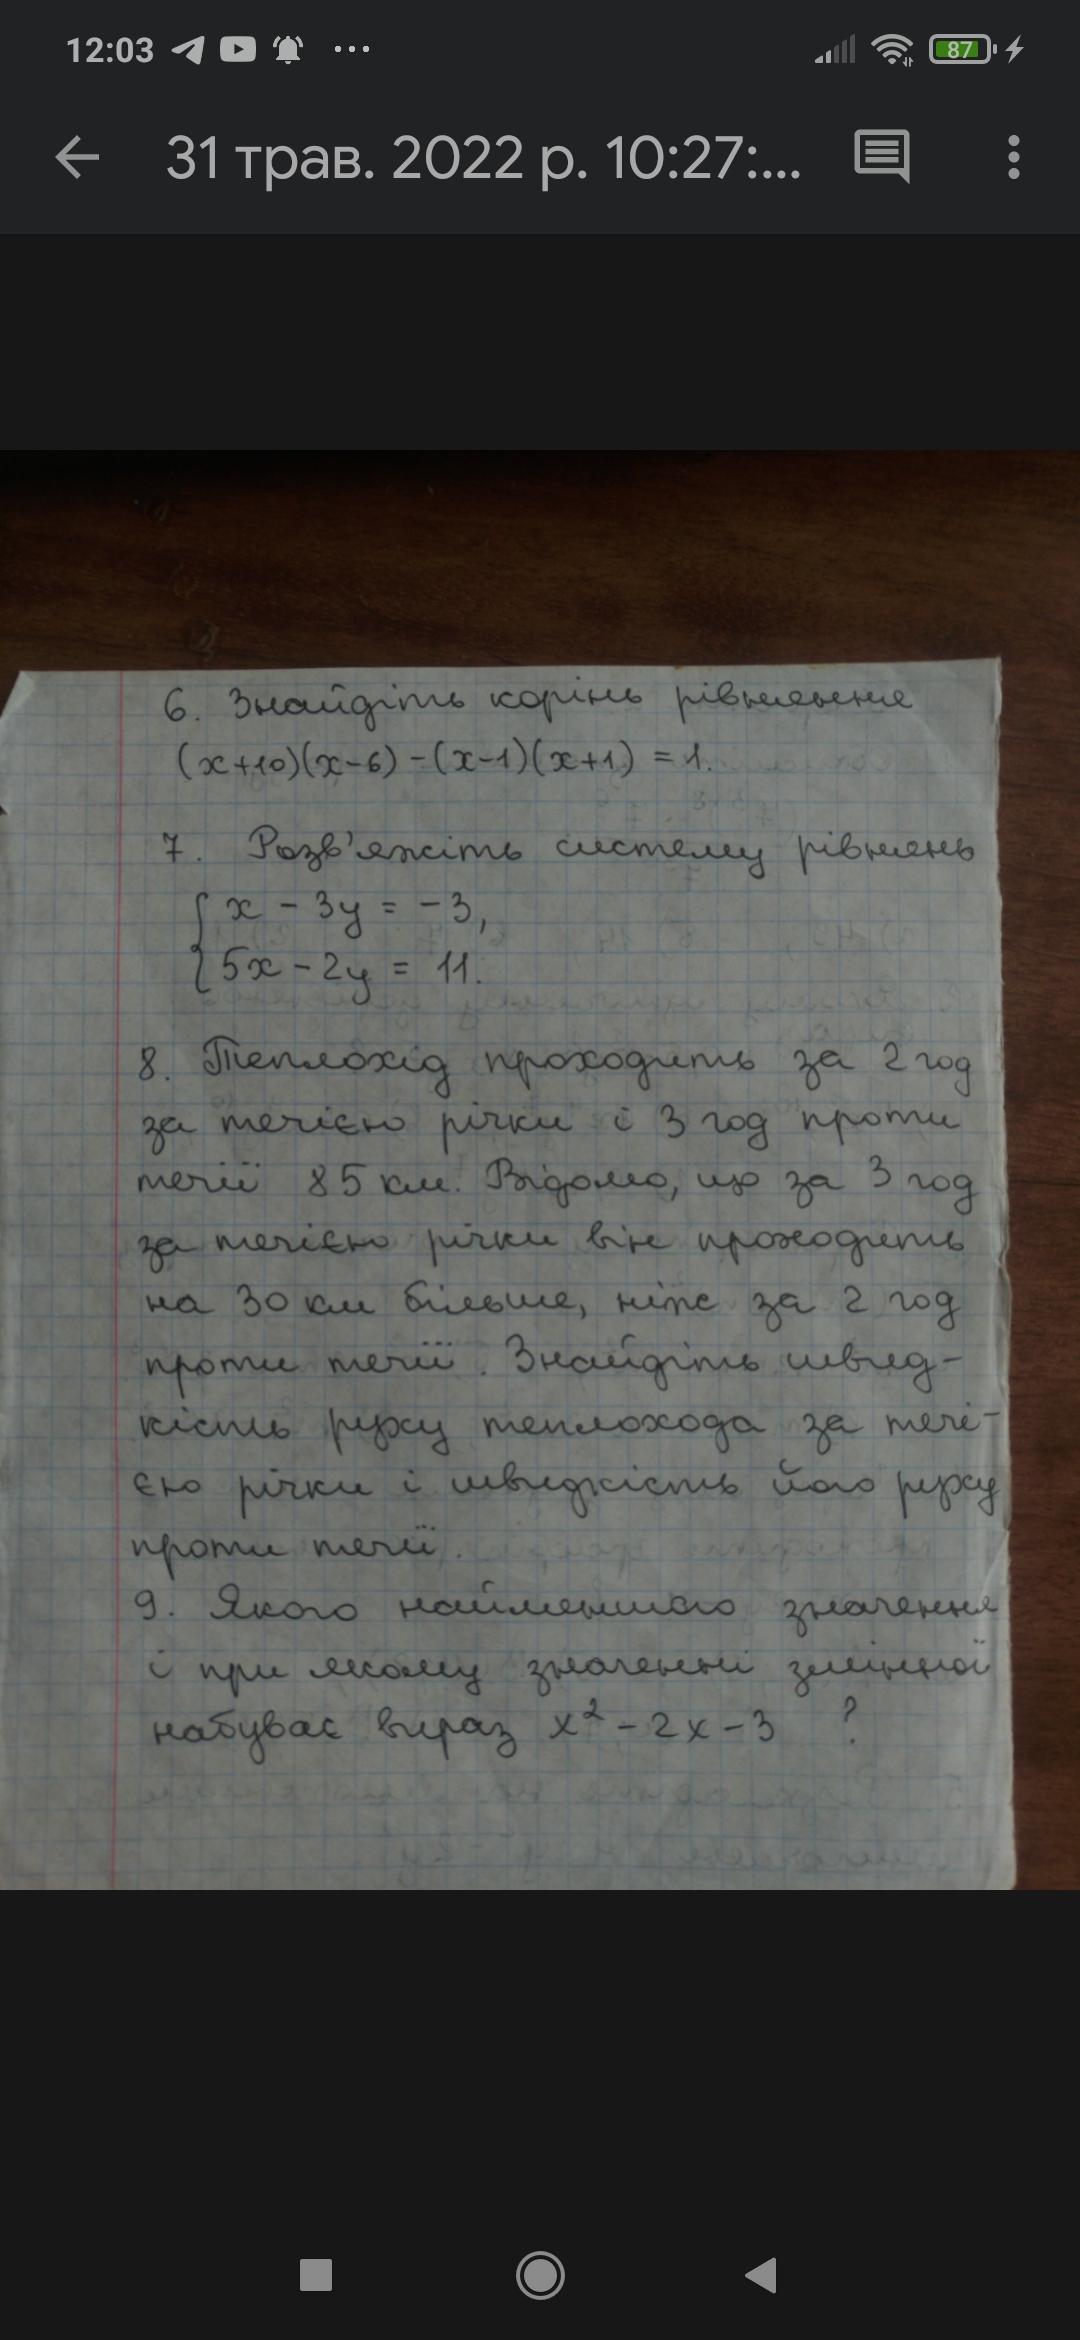 12:03
87
31 трав. 2022 р. 10:27:...
6. Знайдіть корінь рівняння
(x+10)(x-6) - (x-1)(x+1) = 1.
7. Розв'яжіть систему рівнянь
x - 3y = -3,
5x - 2y = 11.
8. Теплохід проходить за 2 год
за течією річки і 3 год проти
течії 85 км. Відомо, що за 3 год
за течією річки він проходить
на 30 км більше, ніж за 2 год
проти течії. Знайдіть швид-
кість руху теплохода за течі-
єю річки і швидкість його руху
проти течії.
9. Якого найменшого значення
і при якому значенні змінної
набуває вираз x² - 2x - 3 ?